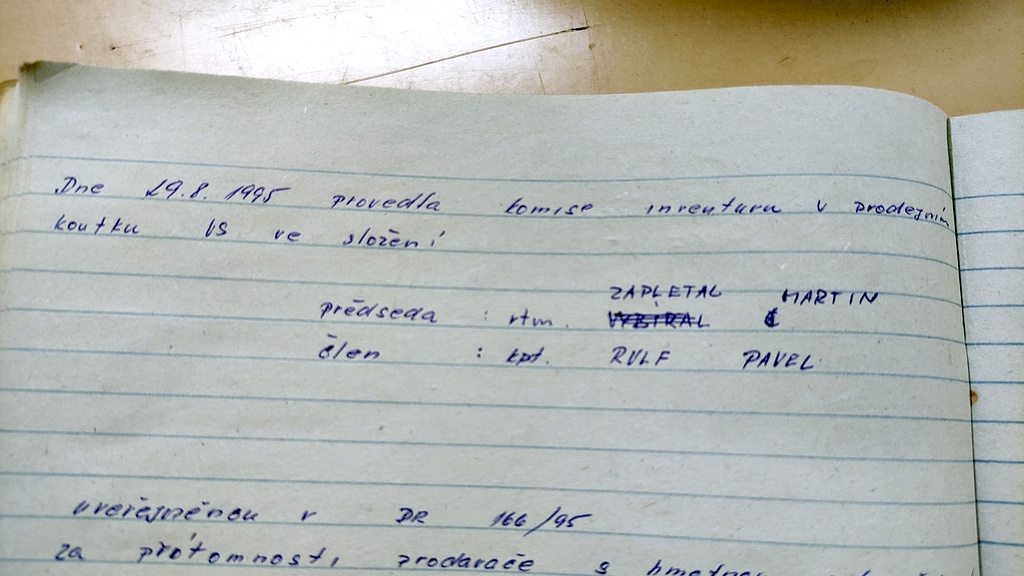 Dne 29.8.1995 provedla komise inventuru v prodejním
koutku VS ve složení
ZAPLETAL MARTIN
předseda : rtm. VYBÍRAL
člen : kpt. RULF PAVEL
uveřejněnou v DR 166/95
za přítomnosti prodavače s hmotnou